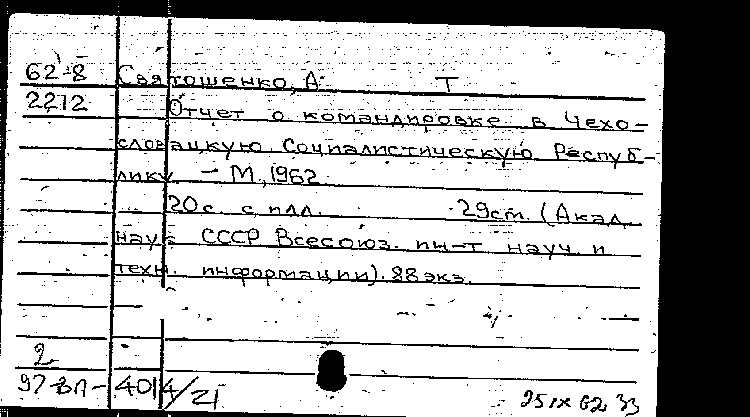 62-8 Святошенко, А. Т
2212 Отчет о командировке в Чехо-
словацкую Социалистическую Респуб-
лику. - М., 1962
20 с. с илл. 29 см. (Акад.
наук СССР Всесоюз. ин-т науч. и
техн. информации). 88 экз.
2
97-ВЛ- 4014/21
25 IX 62 33